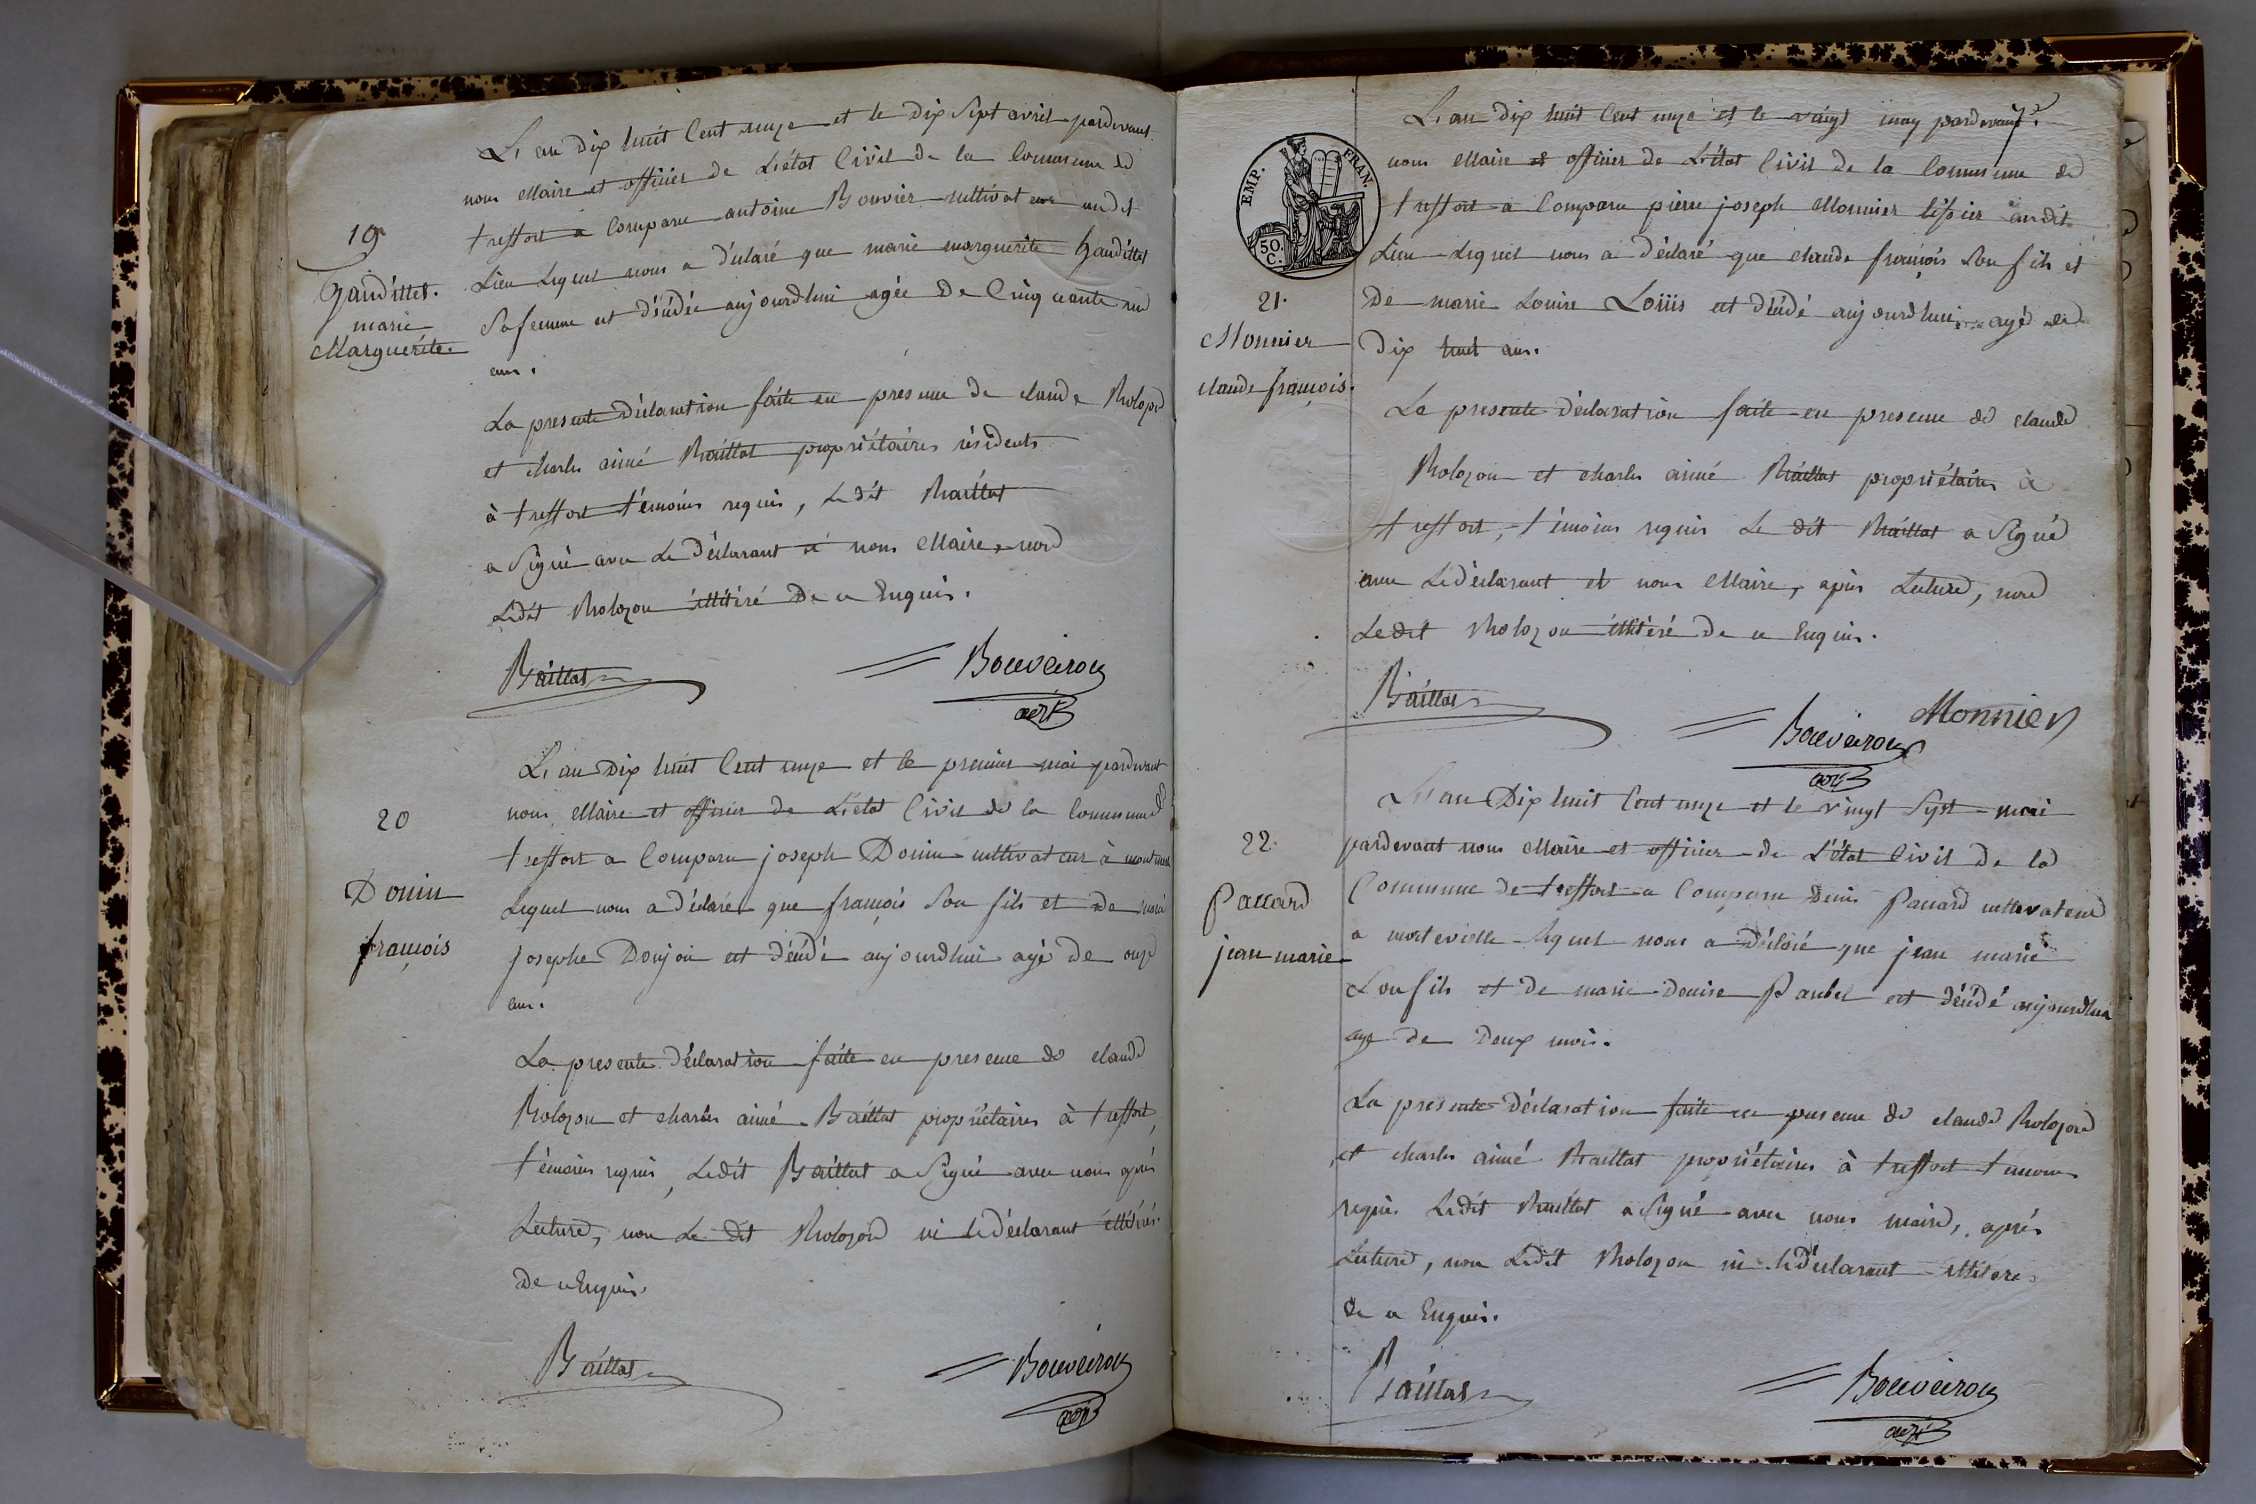 L'an dix huit Cent onze et le dix Sept avril pardevant
nous Maire et officier de L'état Civil de la Commune de
treffort a Comparu antoine Bouvier cultivateur audit
19
Lieu Lequel nous a déclaré que marie marguerite Gandillet
Gandillet.
marie
Marguerite
Sa femme est décédée aujourdhui agée de Cinquante un
ans.
La presente déclaration faite en présence de claude Rolozon
et charles aimé Baillat propriétaires résidents
à treffort témoins requis, Ledit Baillat
a Signé avec Le déclarant et nous Maire, non
Ledit Rolozon illitéré de ce Enquis.
Baillat
Bouveirou
L'an dix huit Cent onze et le premier mai pardevant
20
nous Maire et officier de L'état Civil de la Commune de
treffort a Comparu joseph Donin cultivateur à
Donin
françois
Lequel nous a déclaré que françois Son fils et de marie
josephe Donjon est décédé aujourdhui agé de onze
ans.
La presente déclaration faite en presence de claude
Rolozon et charles aimé Baillat propriétaires à treffort,
témoins requis, Ledit Baillat a Signé avec nous après
Lecture, non Le dit Rolozon ni le déclarant illitérés
de ce Enquis.
Baillat
Bouveirou
L'an dix huit Cent onze et le vingt may pardevant
nous Maire et officier de L'état Civil de la Commune de
EMP. FRAN.
50. C.
treffort a Comparu pierre joseph Monnier audit
Lieu Lequel nous a déclaré que claude françois Son fils et
21.
Monnier
claude françois.
de marie Louise Loüis est décédé aujourdhui agé de
dix huit ans.
La presente déclaration faite en presence de claude
Rolozon et charles aimé Baillat propriétaires à
treffort, témoins requis Le dit Baillat a Signé
avec Le déclarant et nous Maire, après Lecture, non
Ledit Rolozon illitéré de ce Enquis.
Baillat
Bouveirou
Monnier
L'an Dix huit Cent onze et le vingt Sept mai
22.
pardevant nous Maire et officier de L'état Civil de la
Paccard
jean marie
Commune de treffort a Comparu Denis Paccard cultivateur
a Lequel nous a déclaré que jean marie
Son fils et de marie Denise est décédé aujourdhui
agé de Deux mois.
La presente déclaration faite en presence de claude Rolozon
et charles aimé Baillat propriétaires à treffort temoins
requis Ledit Baillat a Signé avec nous maire, après
Lecture, non Ledit Rolozon ni le déclarant illiteres
de ce Enquis.
Baillat
Bouveirou